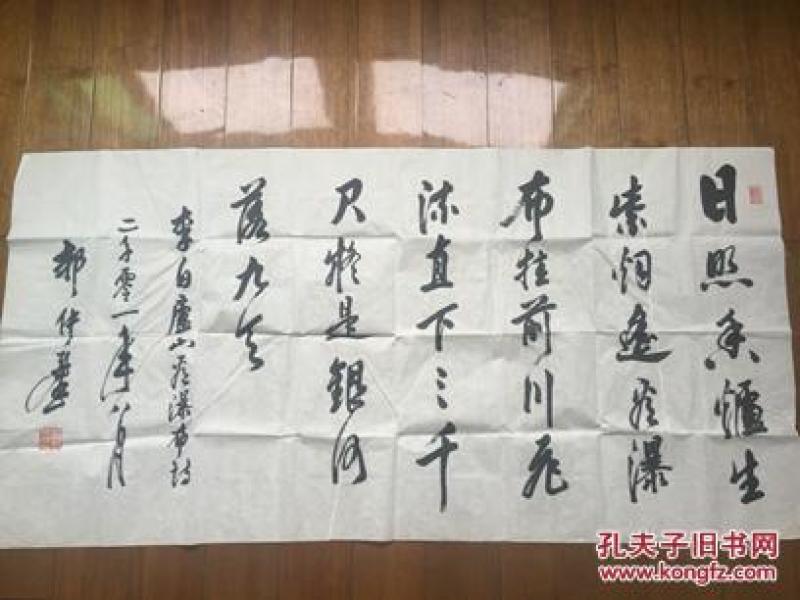 日照香爐生
紫烟遥看瀑
布挂前川飛
流直下三千
尺疑是銀河
落九天
李白廬山看瀑布詩
二千零一年八月
孔夫子旧书网
www.kongfz.com